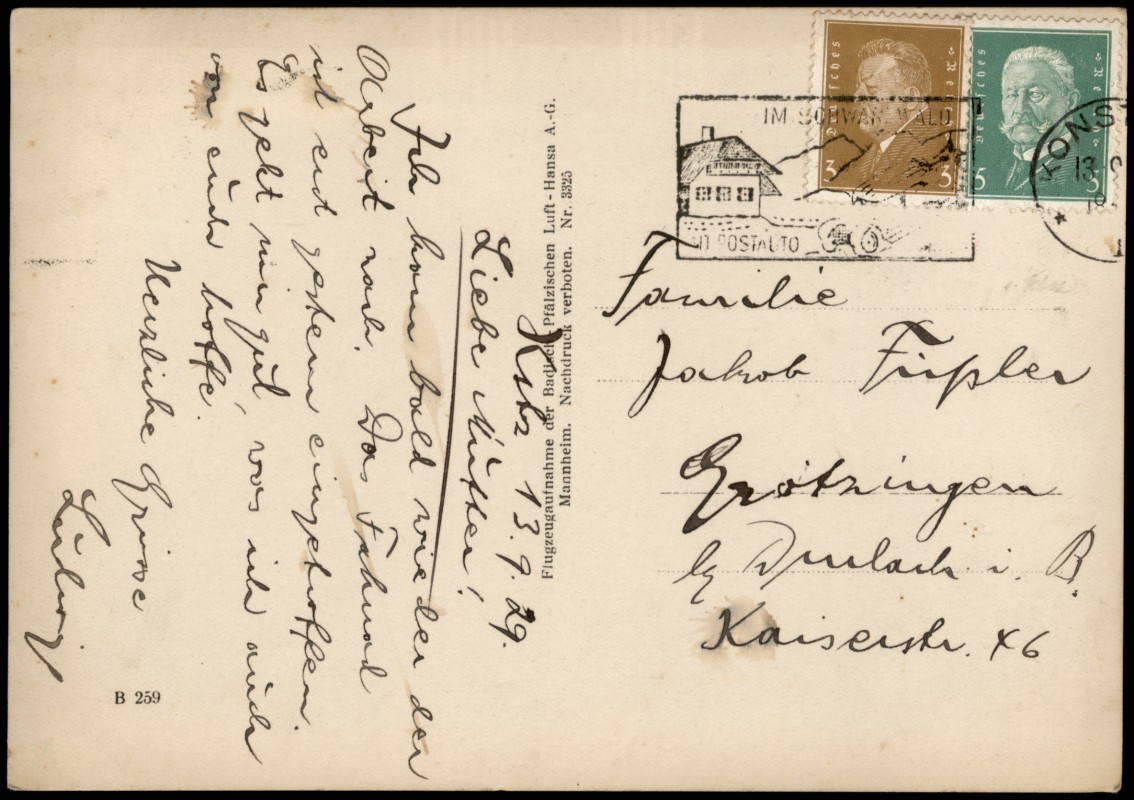 Kstz 13.9.29.
Liebe Mutter!
Ich kam bald wieder der
Arbeit nach. Das Fahrrad
ist erst gestern eingetroffen.
Es geht mir gut, was ich auch
von euch hoffe.
Herzliche Grüsse
Ludwig
B 259
Flugzeugaufnahme der Badisch-Pfälzischen Luft-Hansa A.-G.
Mannheim. Nachdruck verboten. Nr. 3325
Deutsches Reich
3 3
Deutsches Reich
5 5
IM SCHWARZWALD
MIT POSTAUTO
KONST
13
Familie
Jakob Füßler
Grötzingen
bg Durlach i. B.
Kaiserstr. 46